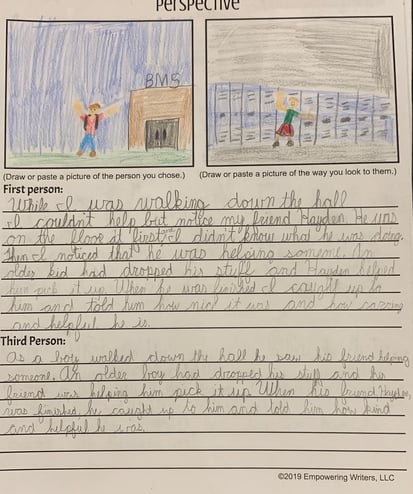 Perspective
BMS
(Draw or paste a picture of the person you chose.)
(Draw or paste a picture of the way you look to them.)
First person:
While I was walking down the hall
I couldn't help but notice my friend Hayden. He was
on the floor at first and I didn't know what he was doing.
Then I noticed that he was helping someone. An
older kid had dropped his stuff and Hayden helped
him pick it up. When he was finished I caught up to
him and told him how nice it was and how caring
and helpful he is.
Third Person:
As a boy walked down the hall he saw his friend helping
someone. An older boy had dropped his stuff and his
friend was helping him pick it up. When his friend Hayden,
was finished, he caught up to him and told him how kind
and helpful he was.
©2019 Empowering Writers, LLC